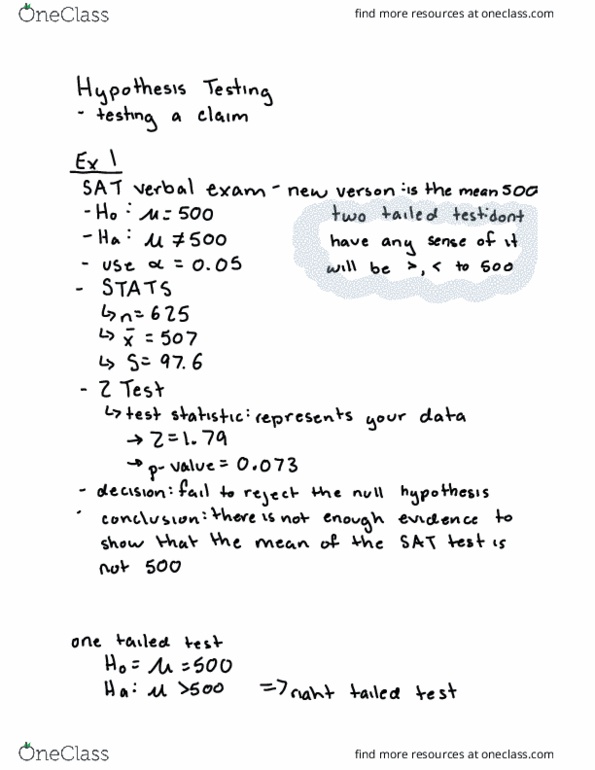 OneClass
find more resources at oneclass.com
Hypothesis Testing
- testing a claim
Ex 1
SAT verbal exam - new verson: is the mean 500
- Ho: μ = 500
two tailed test: dont
- Ha: μ ≠ 500
have any sense of it
- use α = 0.05
will be >, < to 500
- STATS
↳ n = 625
↳ x̄ = 507
↳ S = 97.6
- Z Test
↳ test statistic: represents your data
→ Z = 1.79
→ p-value = 0.073
- decision: fail to reject the null hypothesis
- conclusion: there is not enough evidence to
show that the mean of the SAT test is
not 500
one tailed test
Ho = μ = 500
Ha: μ > 500 => right tailed test
OneClass
find more resources at oneclass.com